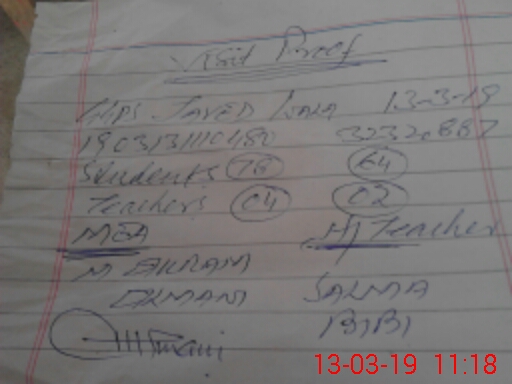 Visit Proof
GGPS JAVED WALA 13-3-19
190313111048 32320887
Students 76 64
Teachers 04 02
MEA H/Teacher
M EKRAM
SALMA
BIBI
13-03-19 11:18